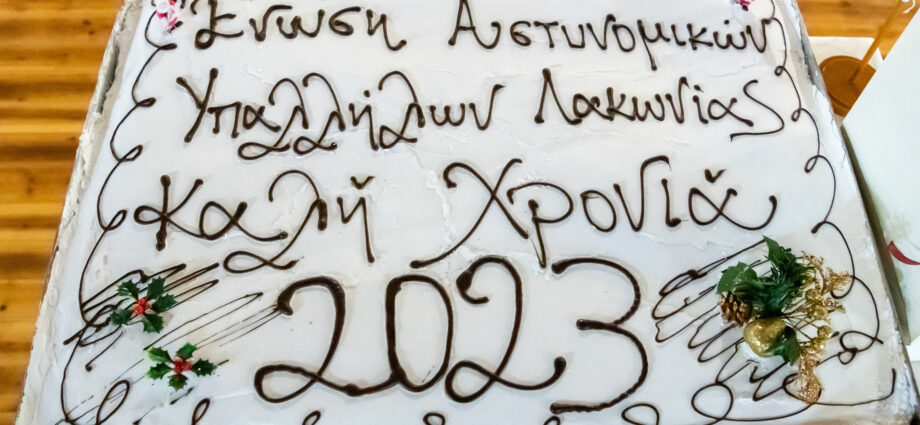 Ένωση Αστυνομικών
Υπαλλήλων Λακωνίας
Καλή Χρονιά
2023